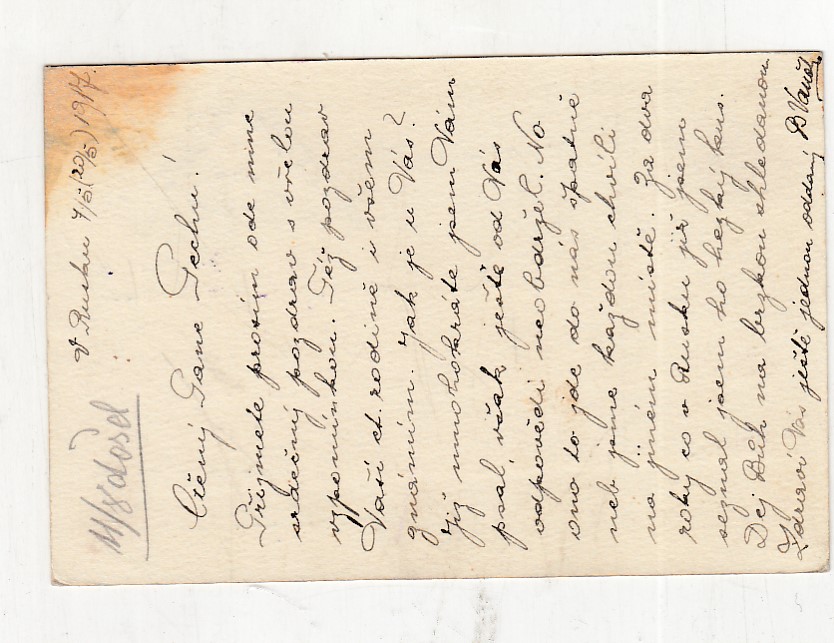 V Rusku 7/5 (20/5) 1917.
11/8 došel
Ctěný Pane Pechu!
Přijmete prosím ode mne
srdečný pozdrav s vřelou
vzpomínkou. Též pozdrav
Vaší ct. rodině i všem
známím. Jak je u Vás?
Již mnohokráte jsem Vám
psal, však ještě od Vás
odpovědi neobdržel. No
ono to jde do nás špatně
neb jsme každou chvíli
na jiném místě. Za dva
roky co v Rusku již jsem
seznal jsem ho hezký kus.
Dej Bůh na brzkou shledanou
Zdraví Vás ještě jednou oddaný B Vaněk